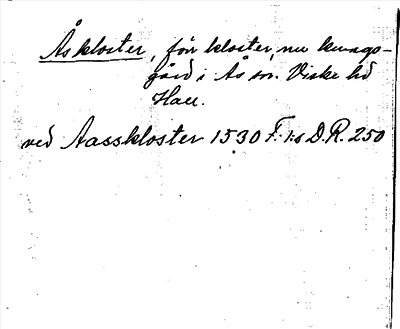 Åskloster, förr kloster, nu kungs-
gård i Ås sn. Viske hd
Hall.
ved Aasskloster 1530 F. I:s D.R. 250